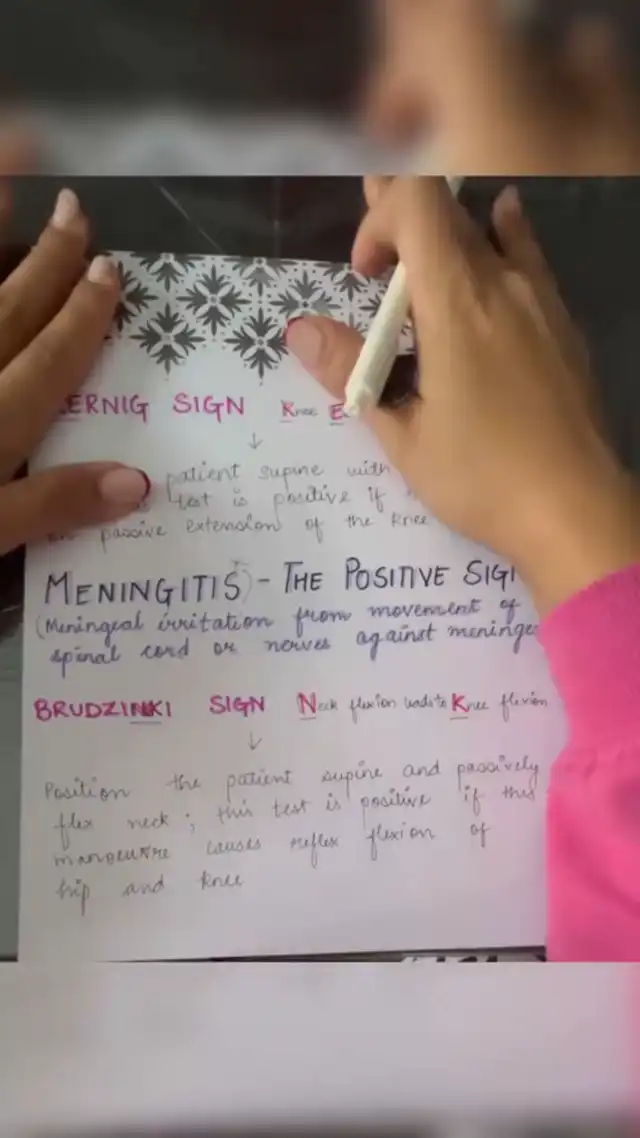 ERNIG SIGN Knee E
↓
patient supine with
test is positive if
passive extension of the knee
MENINGITIS - THE POSITIVE SIG
(Meningeal irritation from movement of
spinal cord or nerves against meninge
BRUDZINKI SIGN Neck flexion leads to Knee flexion
↓
Position the patient supine and passively
flex neck ; this test is positive if this
manoeuvre causes reflex flexion of
hip and knee